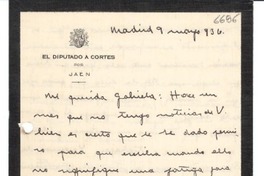 6686
Madrid 9 mayo 936.
EL DIPUTADO A CORTES
POR
JAEN
Mi querida Gabriela: Hace un
mes que no tengo noticias de V.
bien es cierto que le he dado permi
so para que escriba cuando ello
no signifique una fatiga para